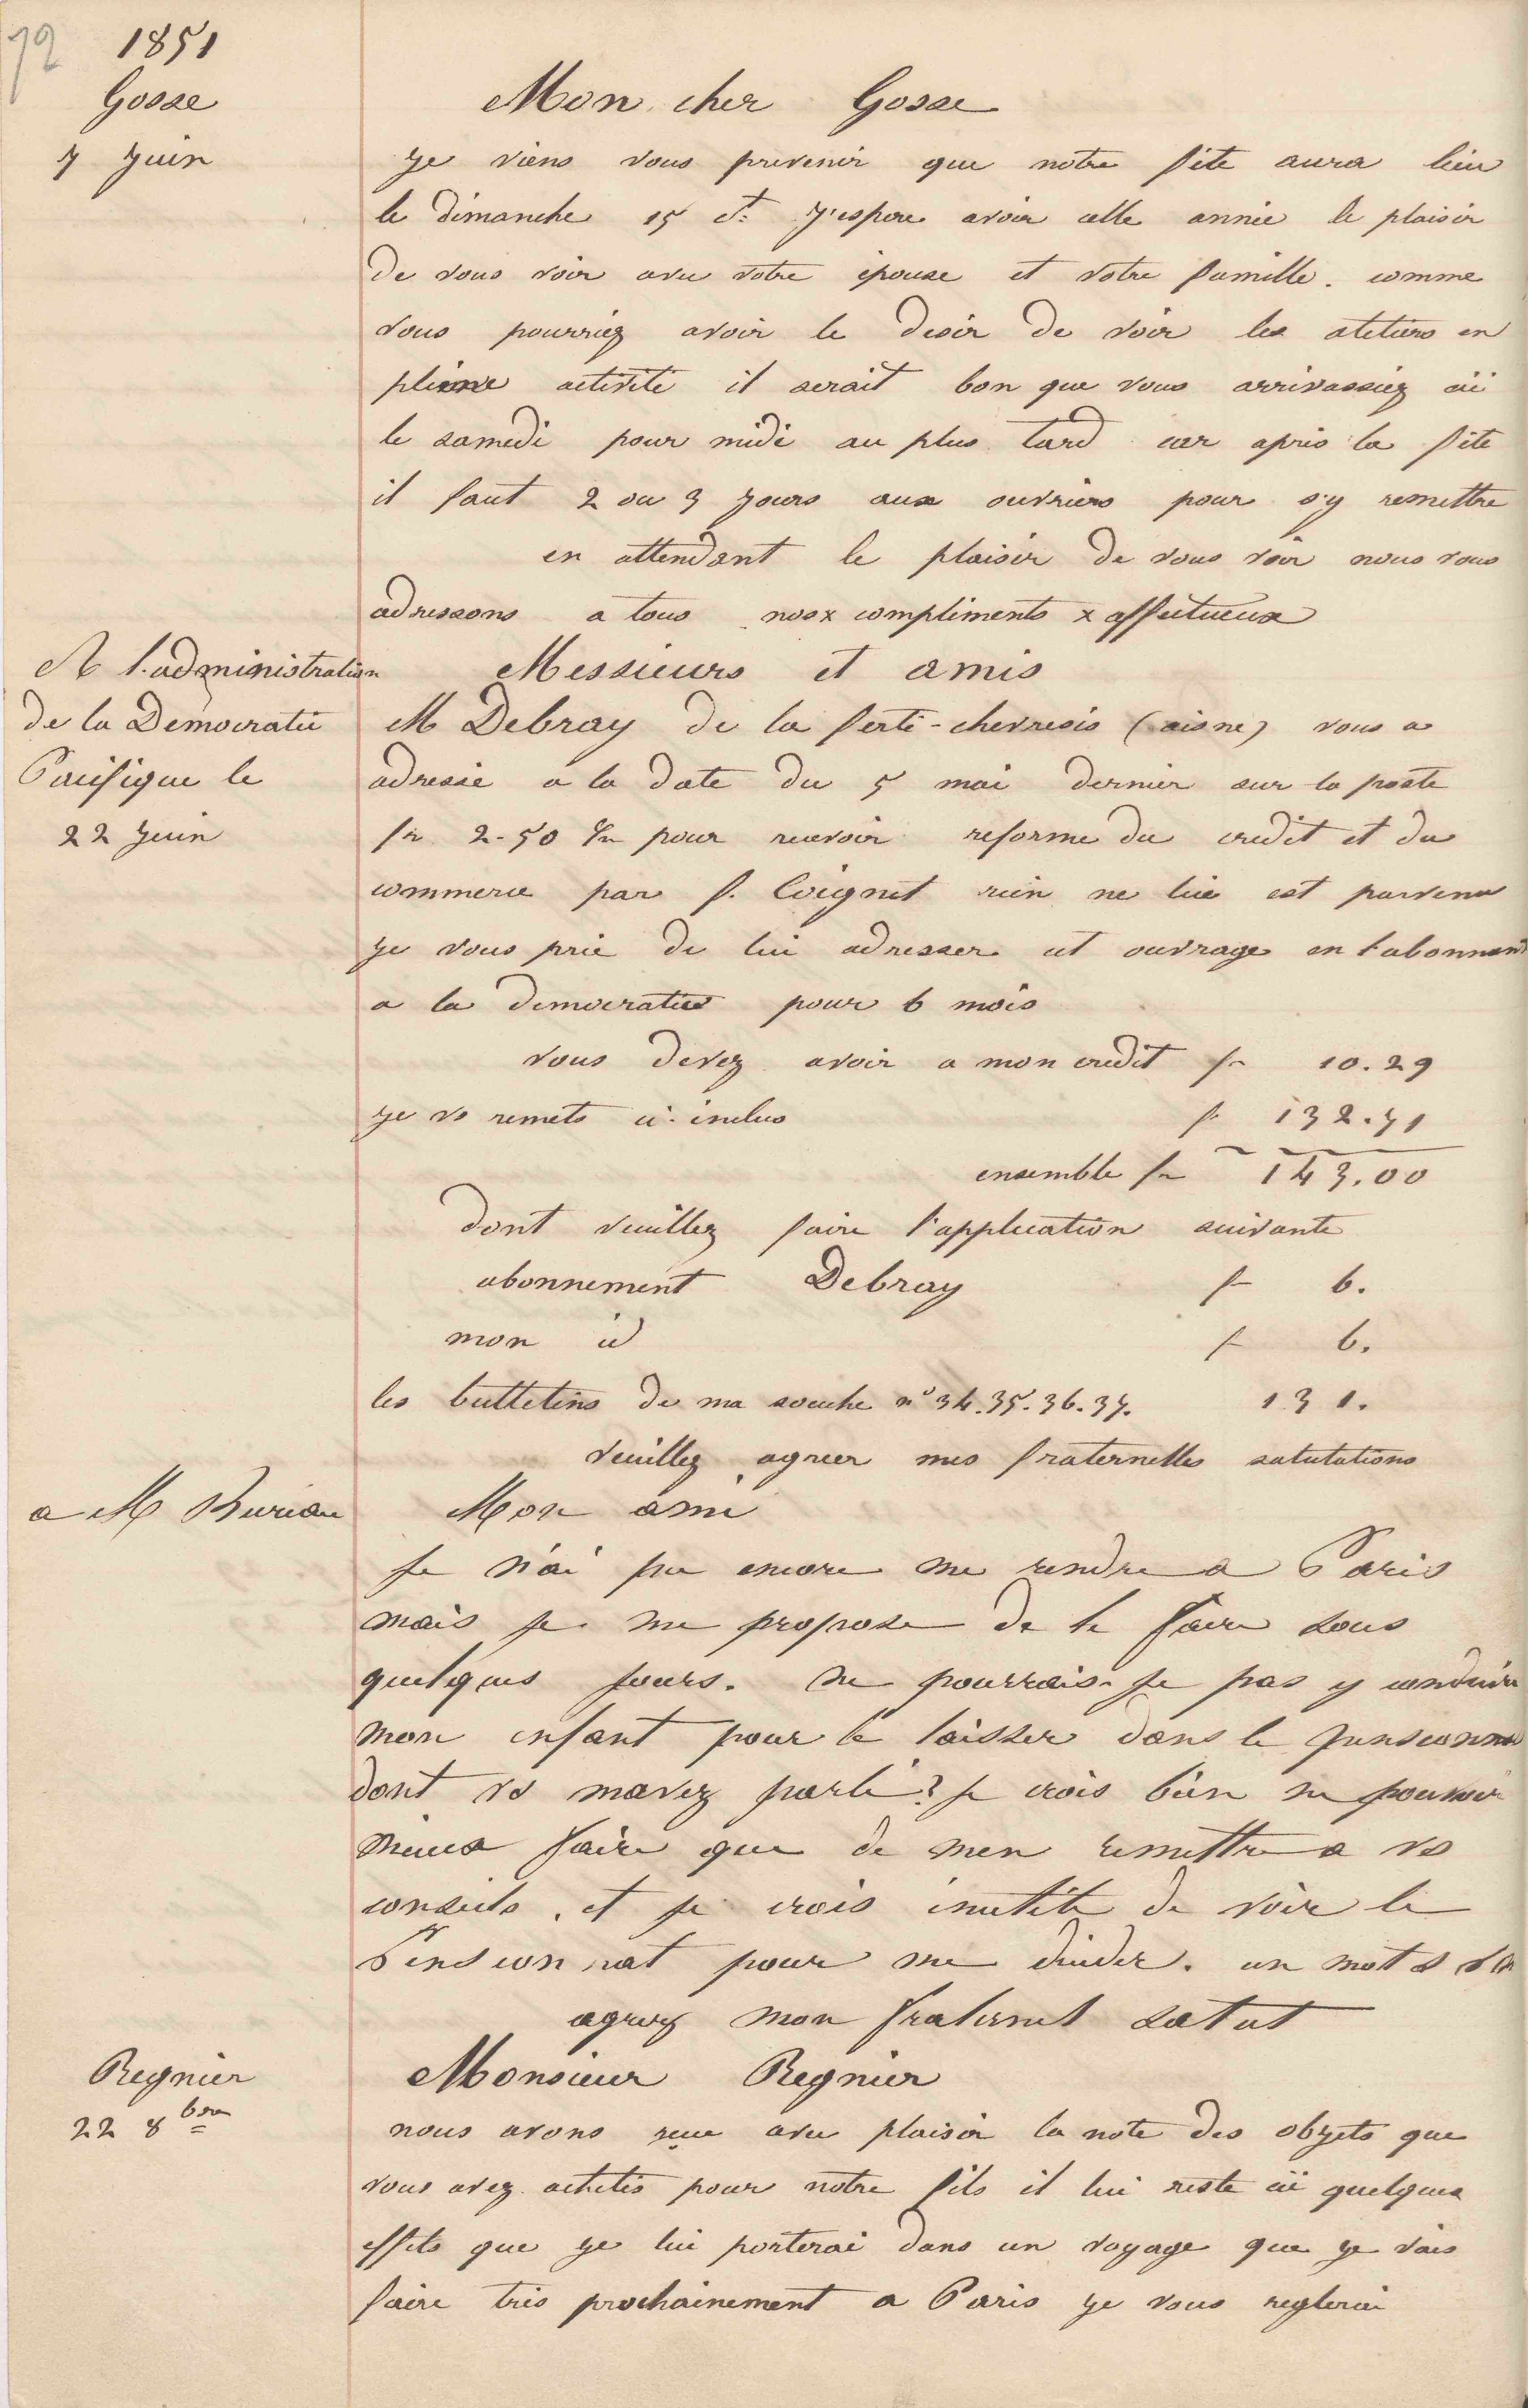 72 1851
Gosse
7 juin
Mon cher Gosse
je viens vous prevenir que notre fête aura lieu
le dimanche 15 ct. j'espere avoir cette année le plaisir
de vous voir avec votre épouse et votre famille. comme
vous pourriez avoir le desir de voir les ateliers en
pleine activité il serait bon que vous arrivassiez ici
le samedi pour midi au plus tard car après la fête
il faut 2 ou 3 jours aux ouvriers pour s'y remettre
en attendant le plaisir de vous voir nous vous
adressons a tous nos x compliments x affectueux
A l'administration
de la Democratie
Pacifique le
22 juin
Messieurs et amis
M Debray de la ferté-chevresis (aisne) vous a
adressé a la date du 5 mai dernier sur la poste
fr 2-50 pour recevoir reforme du credit et du
commerce par f. Coignet rien ne lui est parvenu
je vous prie de lui adresser cet ouvrage en l'abonnant
a la democratie pour 6 mois
vous devez avoir a mon credit fr 10.29
je vs remets ci-inclus f. 132.71
ensemble fr 143.00
dont veuillez faire l'application suivante
abonnement Debray f 6.
mon id f 6.
les bulletins de ma souche n° 34.35.36.37. 131.
veuillez agréer mes fraternelles salutations
a M Burian
Mon ami
Je n'ai pu encore me rendre a Paris
mais je me propose de le faire sous
quelques jours. Ne pourrais-je pas y conduire
mon enfant pour le laisser dans le pensionnat
dont vs mavez parlé? je crois bien ne pouvoir
mieux faire que de men remettre a vs
conseils, et je crois inutile de voir le
Pensionnat pour me decider. un mot s
agréez mon fraternel salut
Regnier
22 8bre
Monsieur Regnier
nous avons reçu avec plaisir la note des objets que
vous avez achetés pour notre fils il lui reste ici quelques
effets que je lui porterai dans un voyage que je vais
faire très prochainement a Paris je vous reglerai